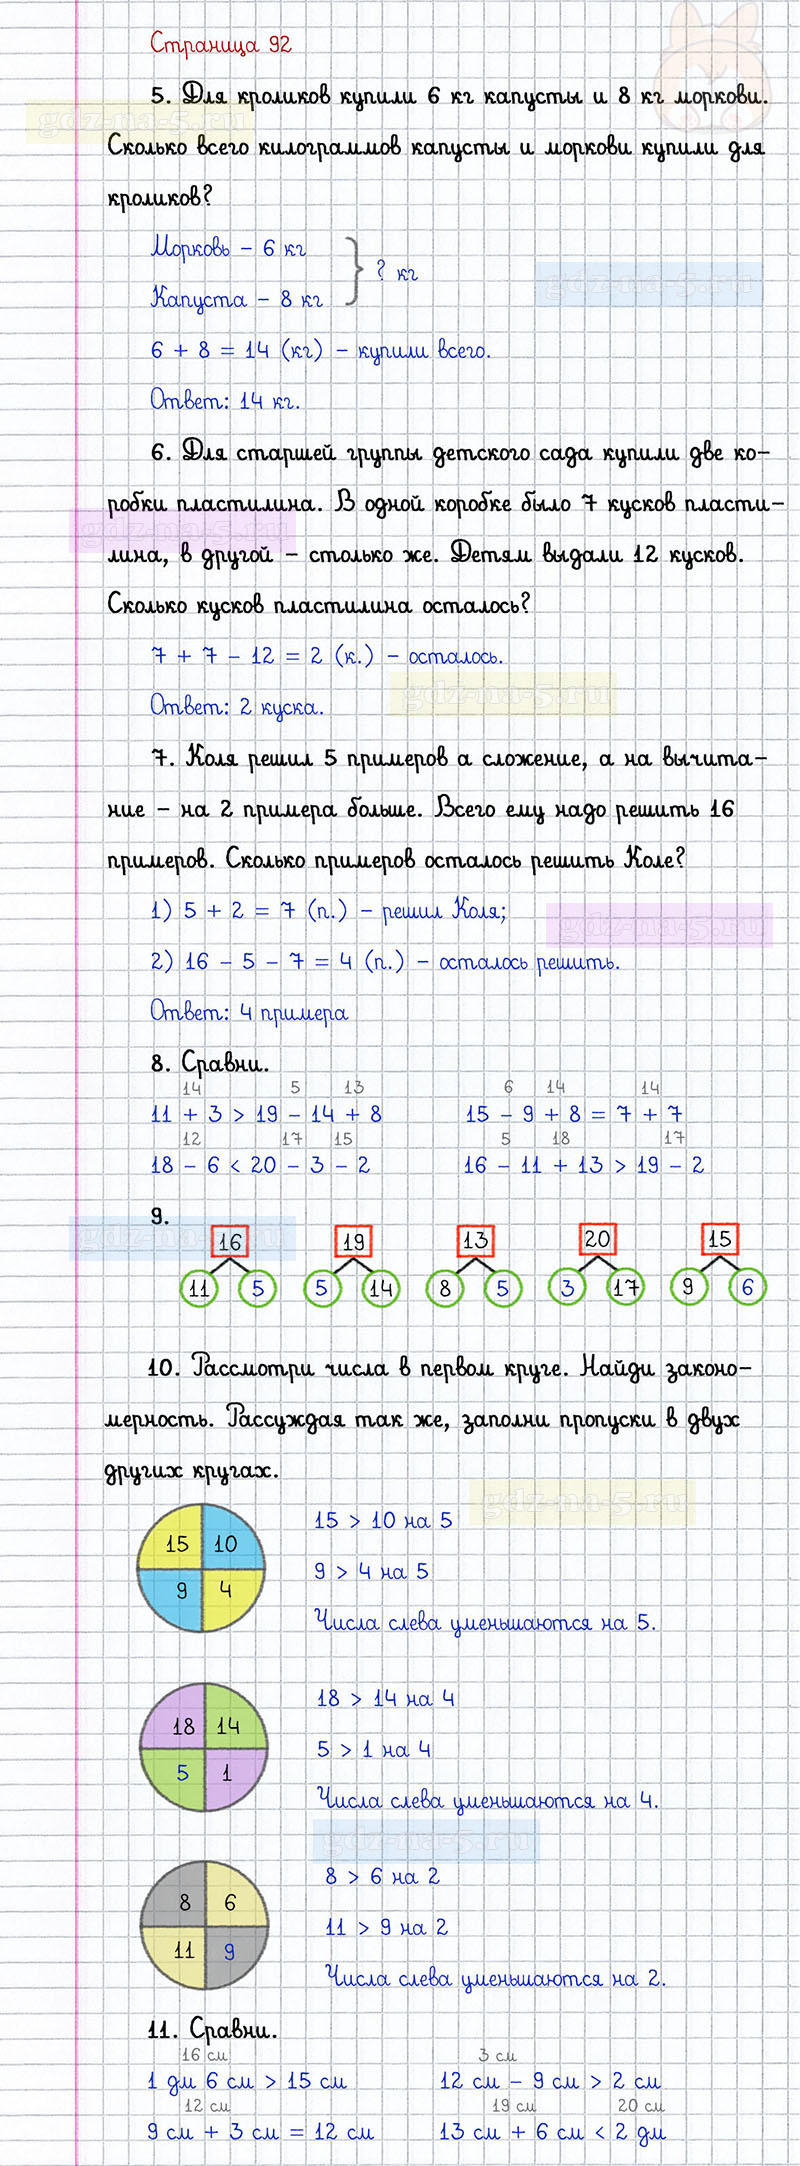 Страница 92
5. Для кроликов купили 6 кг капусты и 8 кг моркови.
gdz-na-5.ru
Сколько всего килограммов капусты и моркови купили для
кроликов?
Морковь – 6 кг
? кг
gdz-na-5.ru
Капуста – 8 кг
6 + 8 = 14 (кг) – купили всего.
Ответ: 14 кг.
6. Для старшей группы детского сада купили две ко–
робки пластилина. В одной коробке было 7 кусков пласти–
gdz-na-5.ru
лина, в другой – столько же. Детям выдали 12 кусков.
Сколько кусков пластилина осталось?
7 + 7 – 12 = 2 (к.) – осталось.
gdz-na-5.ru
Ответ: 2 куска.
7. Коля решил 5 примеров а сложение, а на вычита–
ние – на 2 примера больше. Всего ему надо решить 16
примеров. Сколько примеров осталось решить Коле?
1) 5 + 2 = 7 (п.) – решил Коля;
gdz-na-5.ru
2) 16 – 5 – 7 = 4 (п.) – осталось решить.
Ответ: 4 примера
8. Сравни.
14 5 13 6 14 14
11 + 3 > 19 – 14 + 8 15 – 9 + 8 = 7 + 7
12 17 15 5 18 17
18 – 6 < 20 – 3 – 2 16 – 11 + 13 > 19 – 2
9.
gdz-na-5.ru
16 19 13 20 15
11 5 5 14 8 5 3 17 9 6
10. Рассмотри числа в первом круге. Найди законо–
мерность. Рассуждая так же, заполни пропуски в двух
других кругах.
gdz-na-5.ru
15 10 15 > 10 на 5
9 4 9 > 4 на 5
Числа слева уменьшаются на 5.
18 14 18 > 14 на 4
5 1 5 > 1 на 4
Числа слева уменьшаются на 4.
gdz-na-5.ru
8 6 8 > 6 на 2
11 9 11 > 9 на 2
Числа слева уменьшаются на 2.
11. Сравни.
16 см 3 см
1 дм 6 см > 15 см 12 см – 9 см > 2 см
12 см 19 см 20 см
9 см + 3 см = 12 см 13 см + 6 см < 2 дм